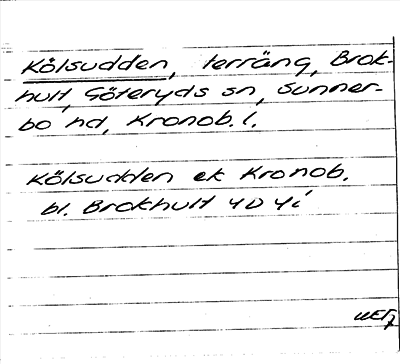 Kölsudden, terräng, Brok-
hult, Göteryds sn, Sunner-
bo hd, Kronob. l.
Kölsudden ek Kronob.
bl. Brokhult 4D 4i